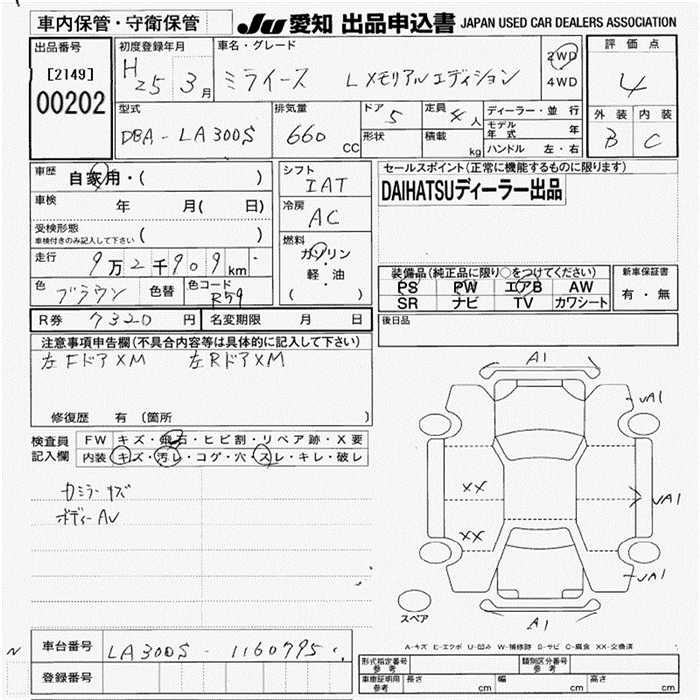 車内保管・守衛保管
JU 愛知 出品申込書 JAPAN USED CAR DEALERS ASSOCIATION
出品番号
[2149]
00202
初度登録年月
H 25 3月
車名・グレード
ミライース L Xメモリアルエディション
2WD
4WD
評価点
4
外装 内装
B C
型式
DBA - LA300S
排気量
660 cc
ドア 5
形状
定員 4人
積載 kg
ディーラー・並行
モデル年式 年
ハンドル 左・右
車歴
自家用・( )
車検 年 月( 日)
受検形態
車検付きのみ記入して下さい ( )
走行 9万2千909km
色 ブラウン 色替 色コード R59
シフト
IAT
冷房
AC
燃料
ガソリン
軽・油
( )
セールスポイント(正常に機能するものに限ります)
DAIHATSUディーラー出品
装備品(純正品に限り○をつけてください)
PS PW エアB AW
SR ナビ TV カワシート
新車保証書
有・無
R券 7320円 名変期限 月 日
後日品
注意事項申告欄(不具合内容等は具体的に記入して下さい)
左FドアXM 左RドアXM
修復歴 有(箇所 )
検査員記入欄
FW キズ・飛石・ヒビ割・リペア跡・X要
内装 キズ・汚レ・コゲ・穴・スレ・キレ・破レ
ボディーAU
A1
A1
XX
XX
A1
A1
スペア
A-キズ E-エクボ U-凹み W-補修跡 S-サビ C-腐食 XX-交換済
車台番号 LA300S - 1160795
登録番号
形式指定番号 参考
類別区分番号 参考
車庫証明用 参考 長さ cm 幅 cm 高さ cm